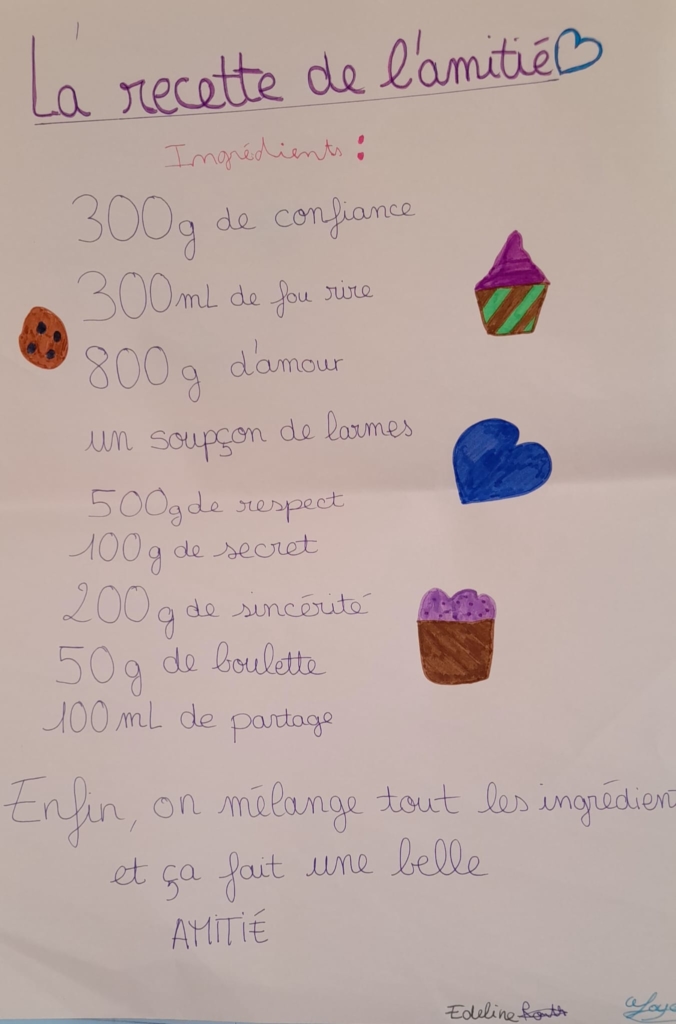 La recette de l'amitié
Ingrédients :
300g de confiance
300mL de fou rire
800g d'amour
un soupçon de larmes
500g de respect
100g de secret
200g de sincérité
50g de boulette
100mL de partage
Enfin, on mélange tout les ingrédien
et ça fait une belle
AMITIÉ
Edeline